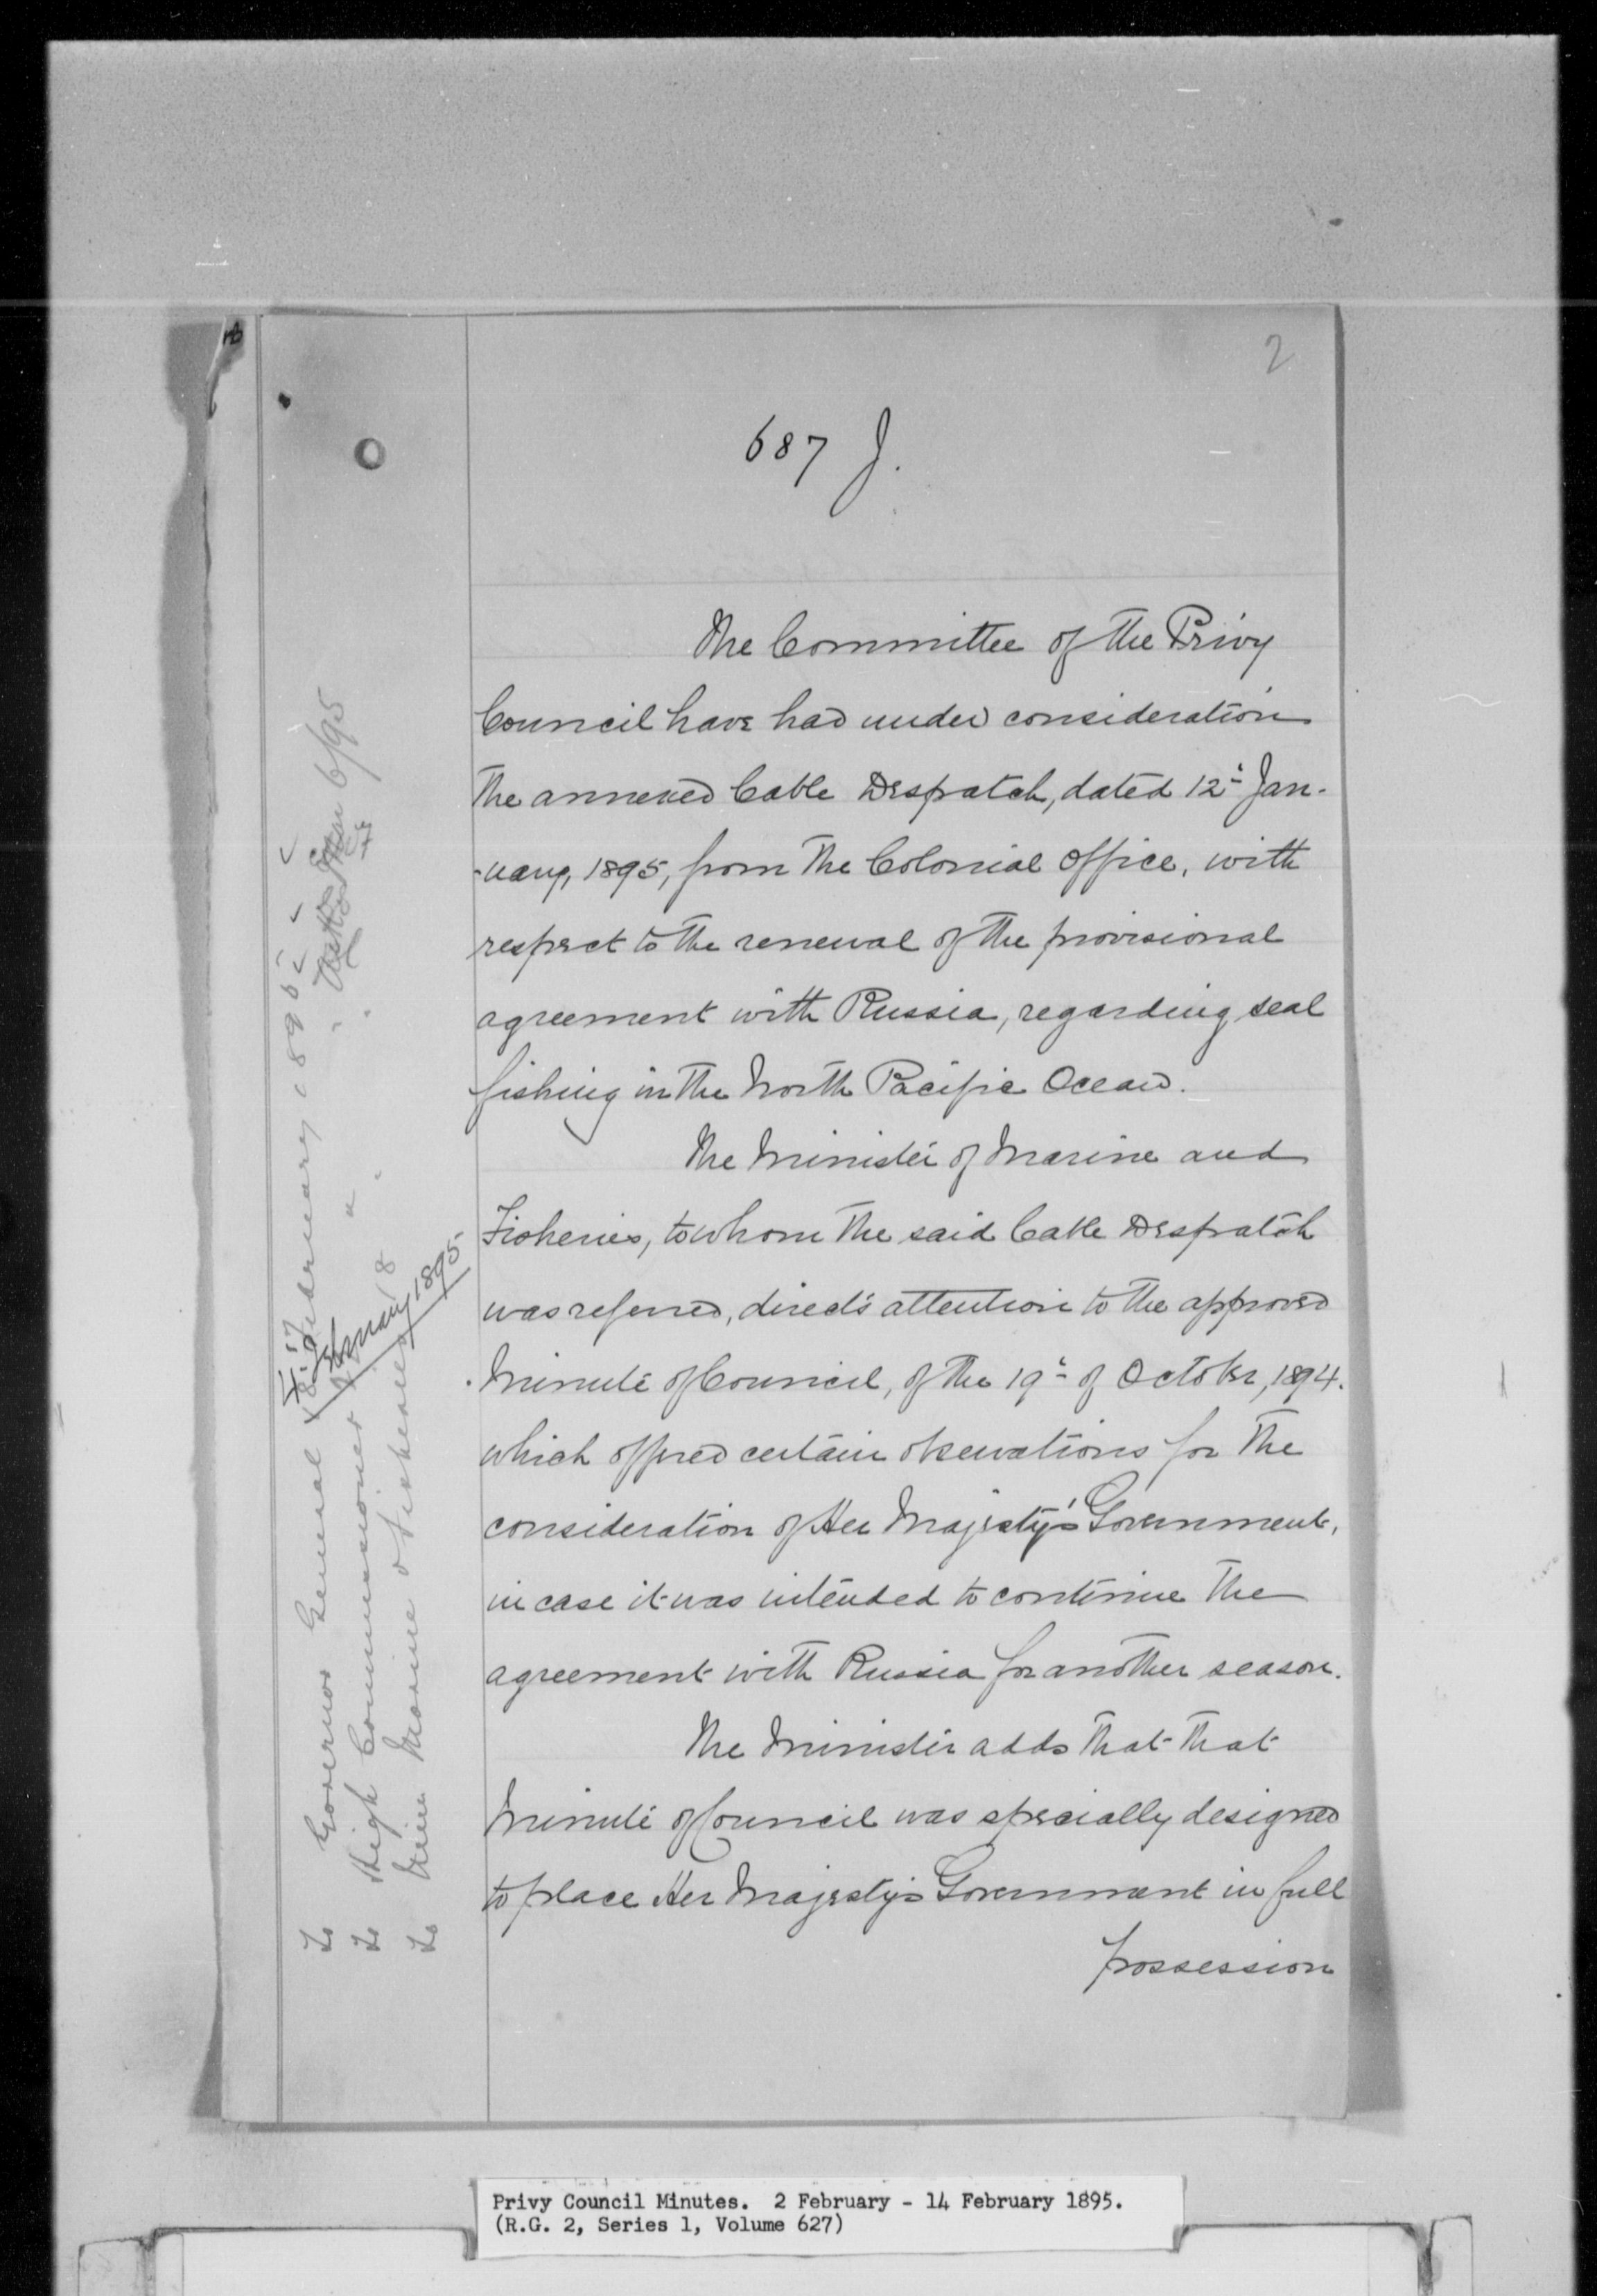 2
687 J.
The Committee of the Privy
Council have had under consideration
the annexed Cable Despatch, dated 12th Jan-
-uary, 1895, from the Colonial Office, with
respect to the renewal of the provisional
agreement with Russia, regarding seal
fishing in the North Pacific Ocean.
The Minister of Marine and
Fisheries, to whom the said Cable Despatch
was referred, directs attention to the approved
Minute of Council, of the 19th of October, 1894.
which offered certain observations for the
consideration of Her Majesty's Government,
in case it was intended to continue the
agreement with Russia for another season.
The Minister adds that that
Minute of Council was specially designed
to place Her Majesty's Government in full
possession
To Governor General February 1895
To High Commissioner
To Min Marine & Fisheries 8
6/95
February 1895
Privy Council Minutes. 2 February - 14 February 1895.
(R.G. 2, Series 1, Volume 627)